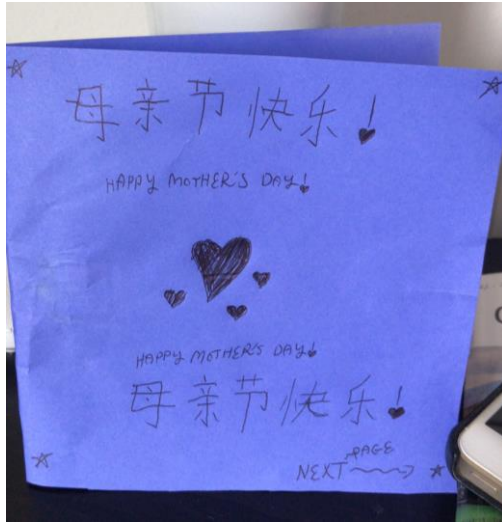 母亲节快乐!
HAPPY MOTHER'S DAY!
HAPPY MOTHER'S DAY!
母亲节快乐!
NEXT PAGE